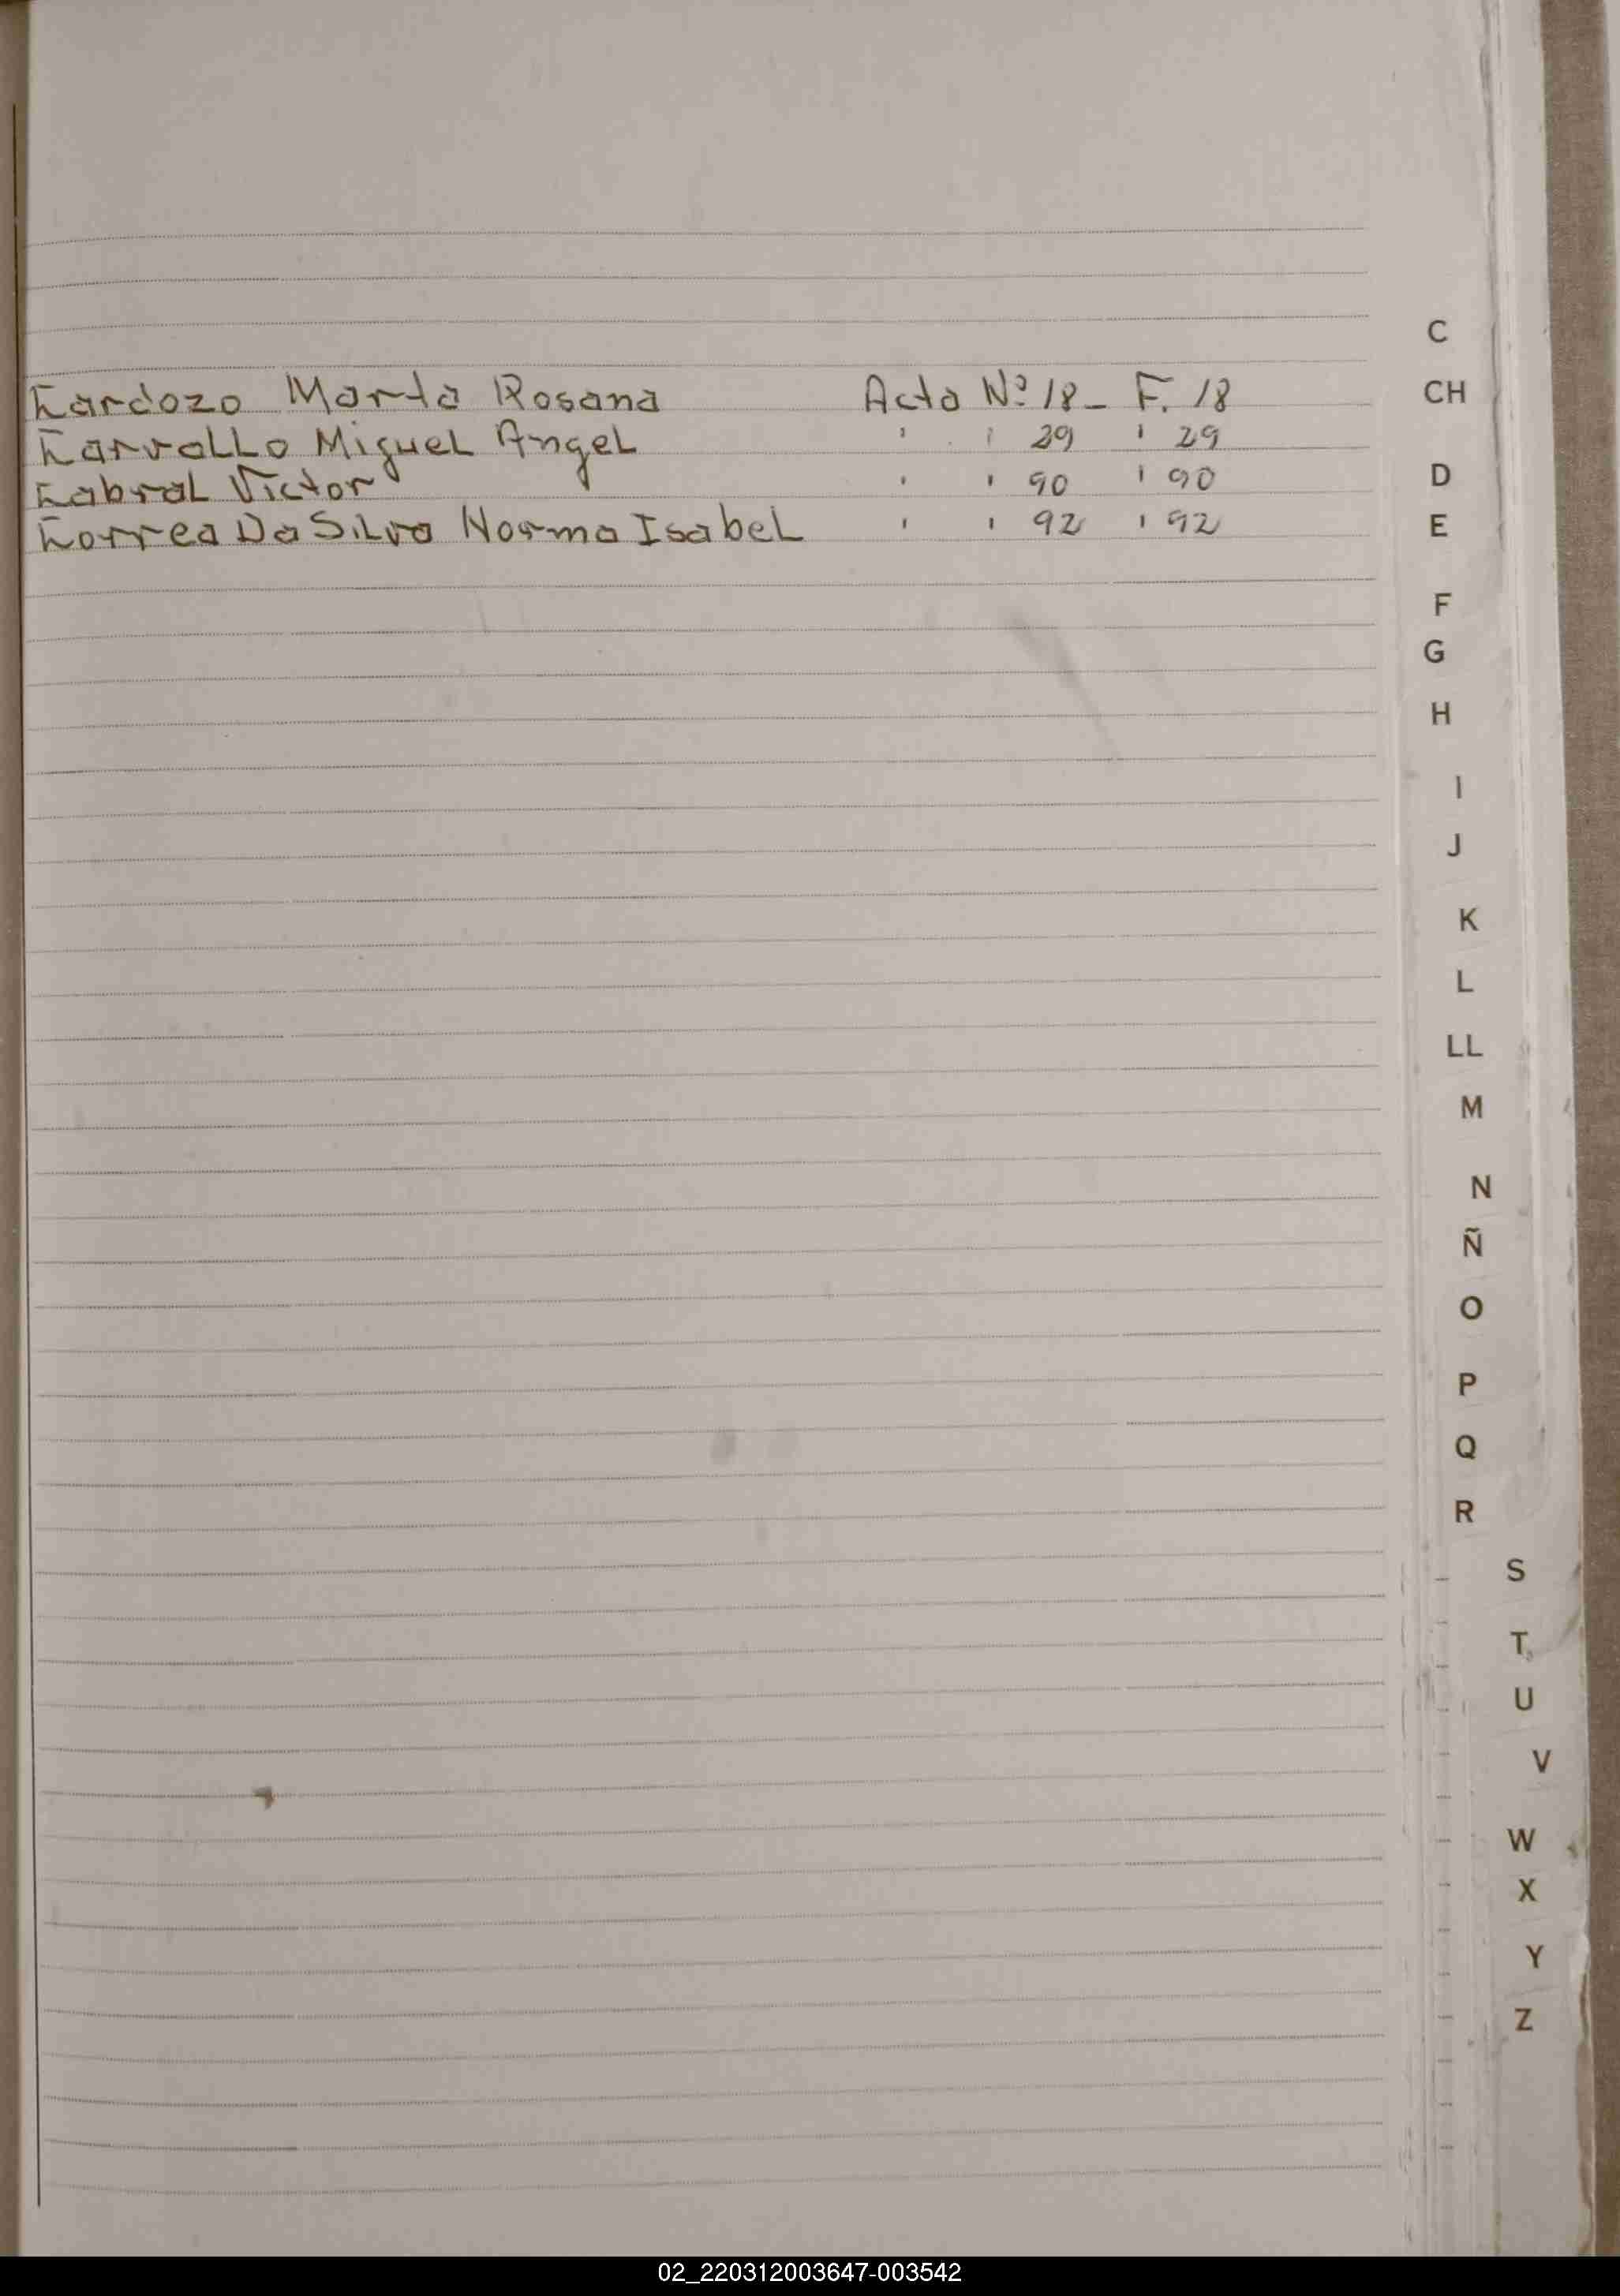 Cardozo Marta Rosana Acta Nº 18_ F. 18
Carvallo Miguel Angel " " 29 " 29
Cabral Victor " " 90 " 90
Correa Da Silva Norma Isabel " " 92 " 92
C
CH
D
E
F
G
H
I
J
K
L
LL
M
N
Ñ
O
P
Q
R
S
T
U
V
W
X
Y
Z
02_220312003647-003542